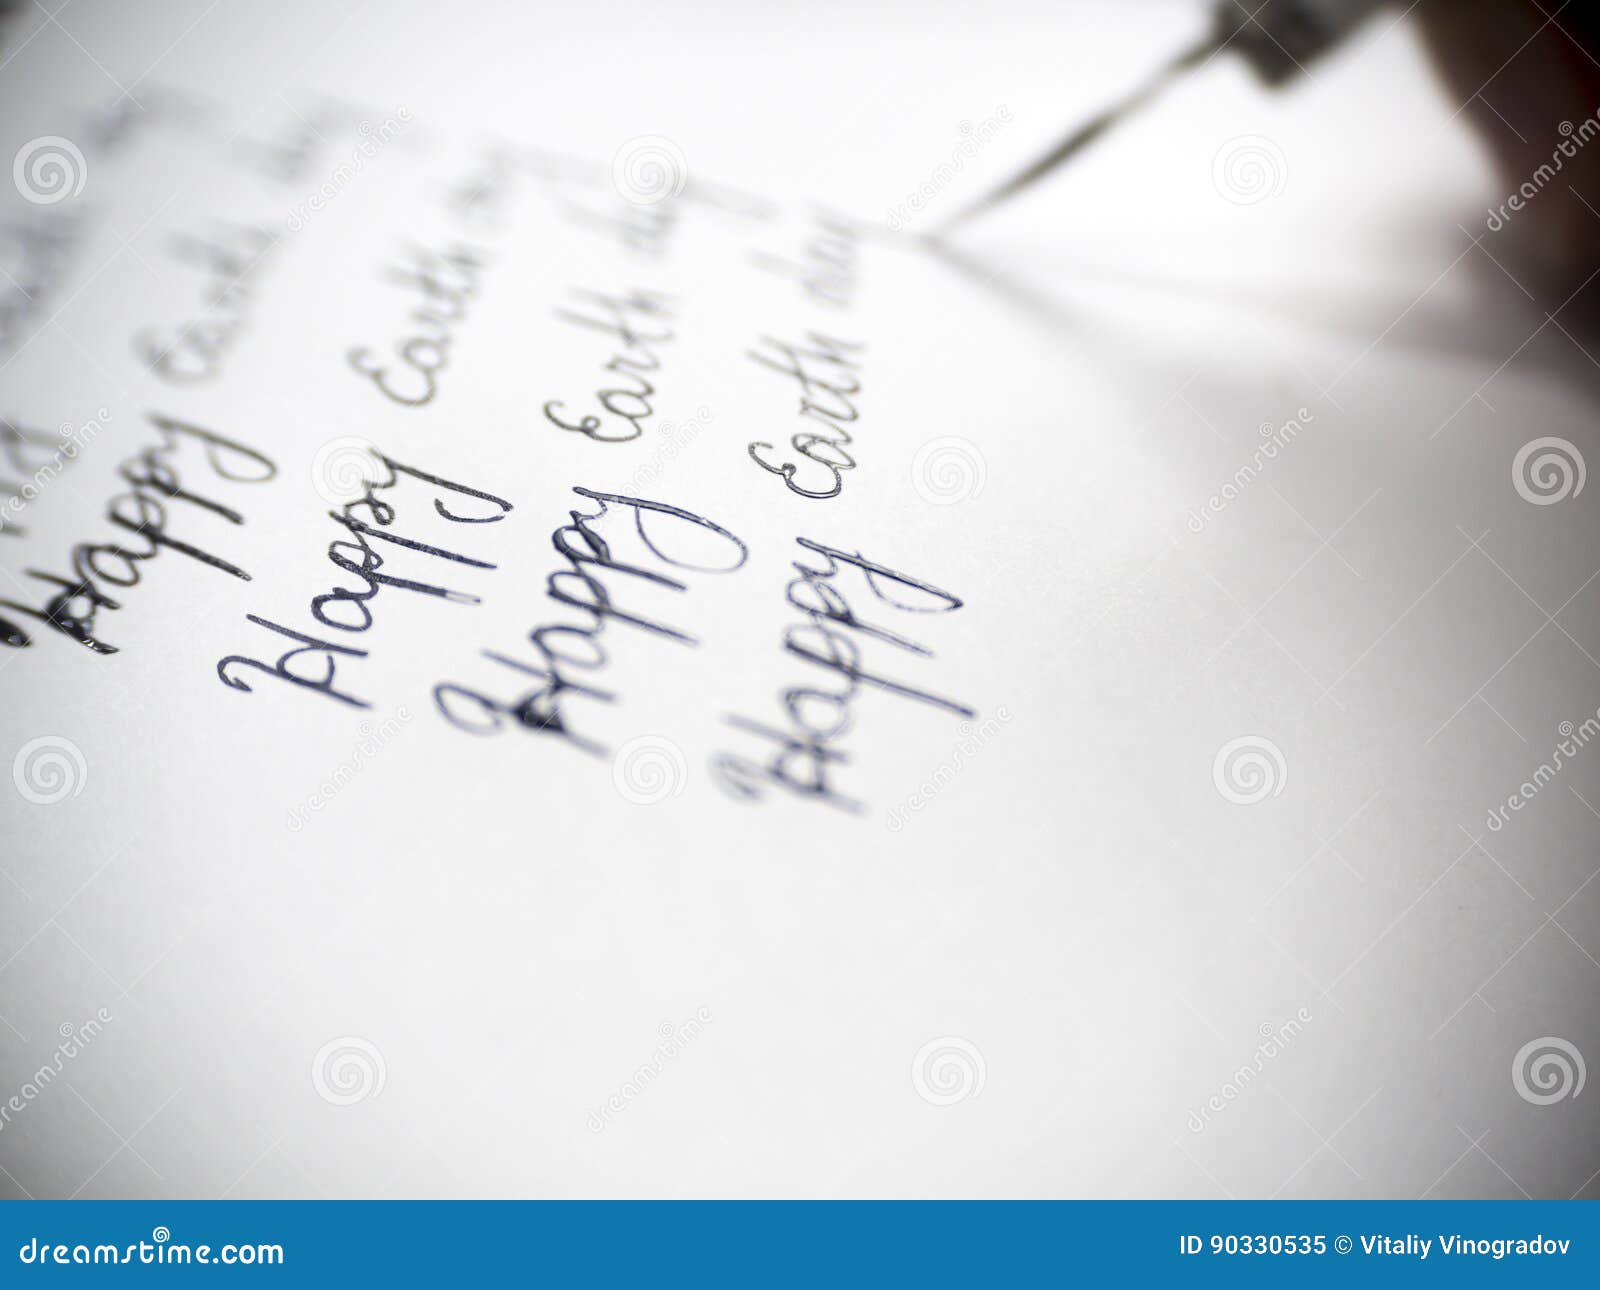 Happy Earth day
Happy Earth day
Happy Earth day
Happy Earth day
Happy Earth da
dreamstime.com
ID 90330535 © Vitaliy Vinogradov